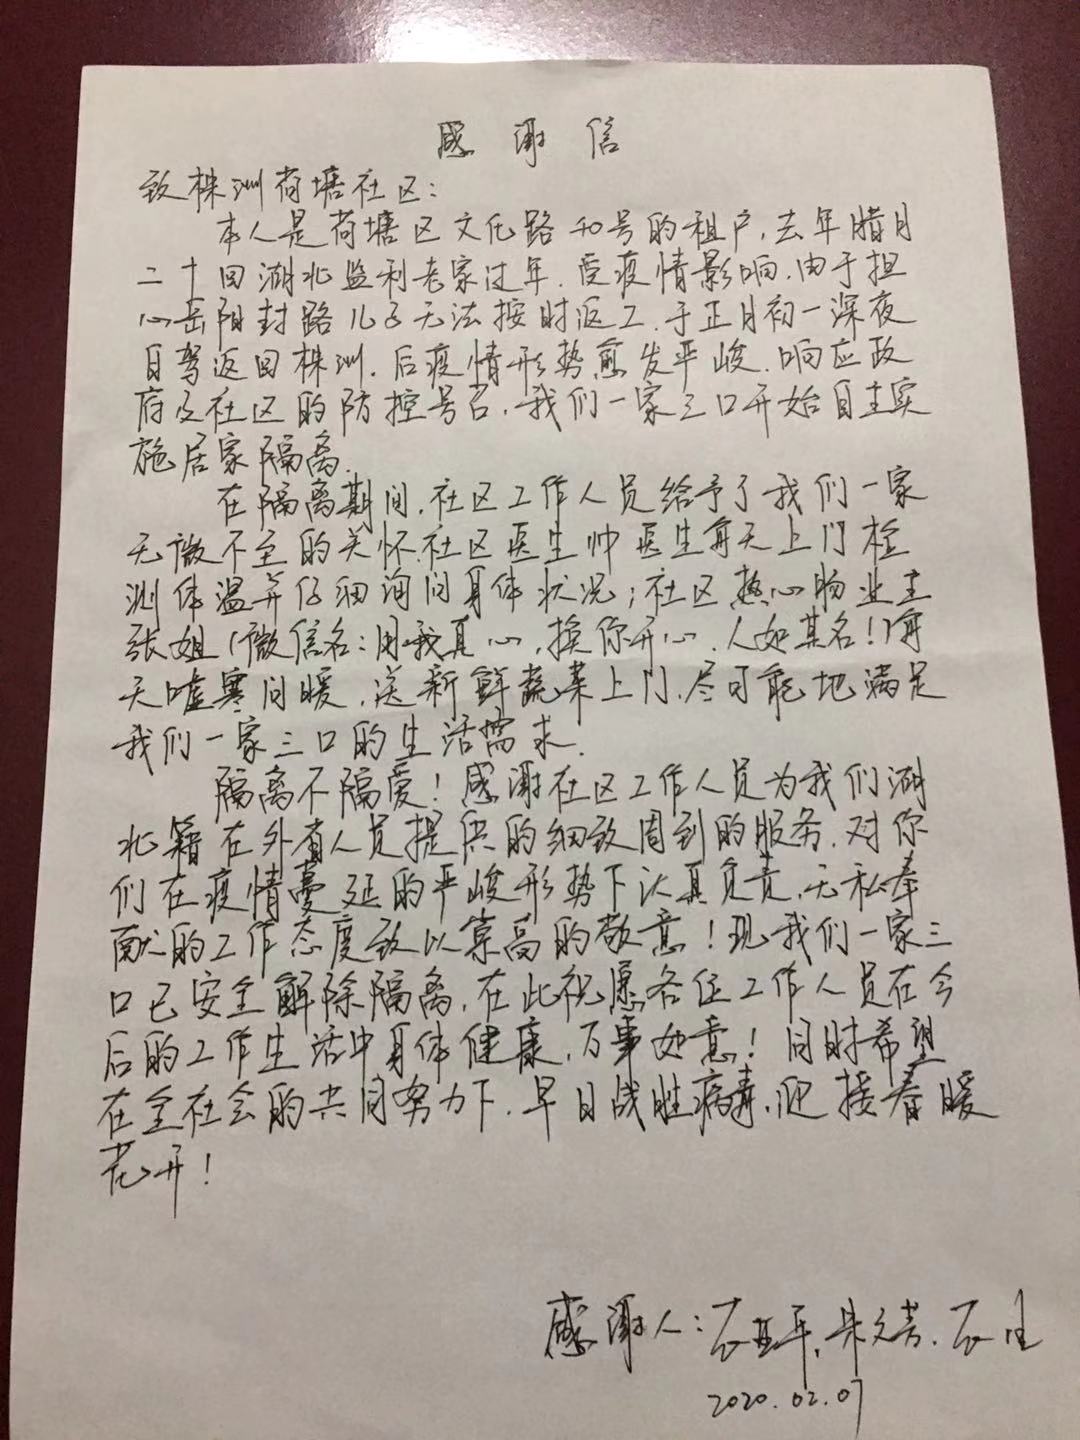 感谢信
致株洲荷塘社区：
本人是荷塘区文化路40号的租户，去年腊月
二十回湖北监利老家过年，受疫情影响，由于担
心岳阳封路儿子无法按时返工，于正月初一深夜
自驾返回株洲，后疫情形势愈发严峻，响应政
府及社区的防控号召，我们一家三口开始自主实
施居家隔离。
在隔离期间，社区工作人员给予了我们一家
无微不至的关怀，社区医生帅医生每天上门检
测体温并仔细询问身体状况；社区热心物业主
张姐（微信名：用我真心，换你开心，人如其名！）每
天嘘寒问暖，送新鲜蔬菜上门，尽可能地满足
我们一家三口的生活需求。
隔离不隔爱！感谢社区工作人员为我们湖
北籍在外省人员提供的细致周到的服务，对你
们在疫情蔓延的严峻形势下认真负责，无私奉
献的工作态度致以崇高的敬意！现我们一家三
口已安全解除隔离，在此祝愿各位工作人员在今
后的工作生活中身体健康，万事如意！同时希望
在全社会的共同努力下，早日战胜病毒，迎接春暖
花开！
感谢人：
2020.02.07